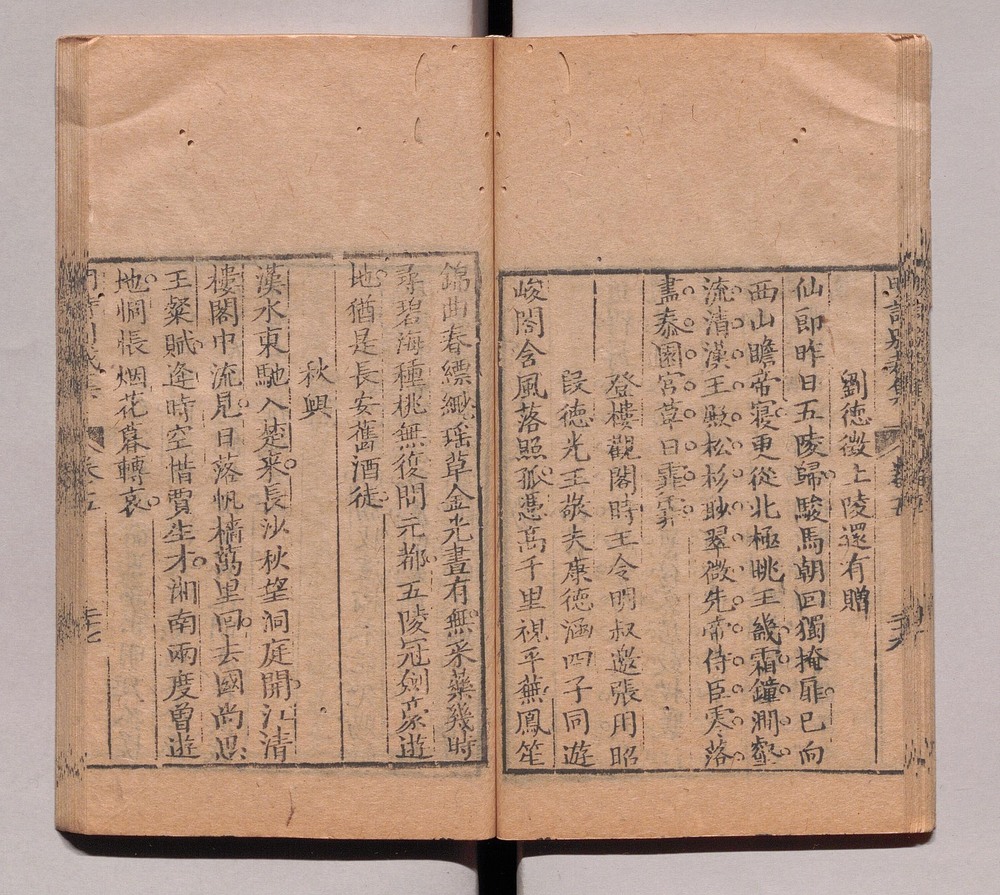 劉德徵上陵還有贈
仙郎昨日五陵歸駿馬朝回獨掩扉已向
西山瞻帝寢更從北極眺王畿霜鐘澗壑
流清漢王殿松杉眇翠微先帝侍臣零落
盡泰園宮草日霏霏
登樓觀閣時王令明叔邀張用昭
段德光王敬夫康德涵四子同遊
峻閣含風落照孤憑高千里視平蕪鳳笙
錦曲春縹緲瑶草金光晝有無采藥幾時
尋碧海種桃無復問元都五陵冠劍豪遊
地猶是長安舊酒徒
秋興
漢水東馳入楚來長沙秋望洞庭開江清
樓閣中流見日落帆檣萬里回去國尚思
王粲賦逢時空惜賈生才湘南兩度曾遊
地惆悵烟花暮轉哀
卷五